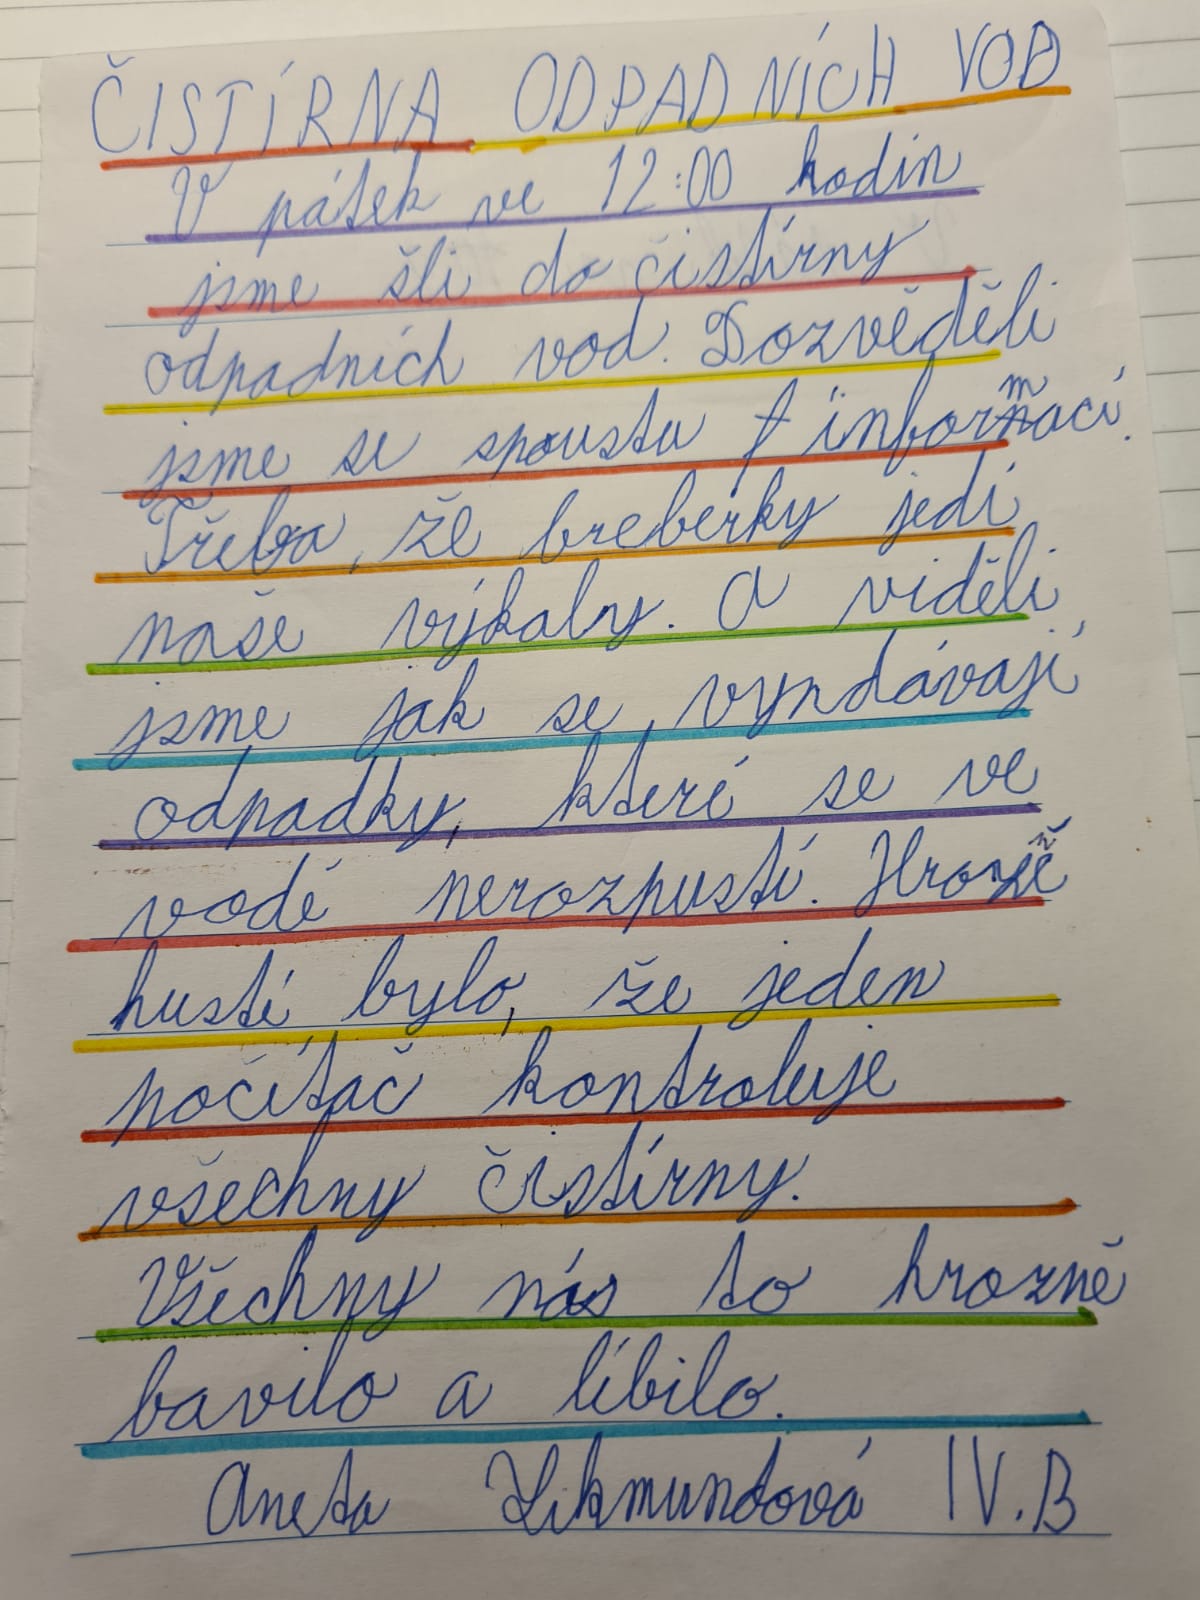 ČISTÍRNA ODPADNÍCH VOD
V pátek ve 12:00 hodin
jsme šli do čistírny
odpadních vod. Dozvěděli
jsme se spoustu informací.
Třeba, že breberky jedí
naše výkaly. A viděli
jsme jak se vyndávají
odpadky, které se ve
vodě nerozpustí. Hrozně
hustí bylo, že jeden
počítač kontroluje
všechny čistírny.
Všechny nás to hrozně
bavilo a líbilo.
Aneta Zikmundová IV.B